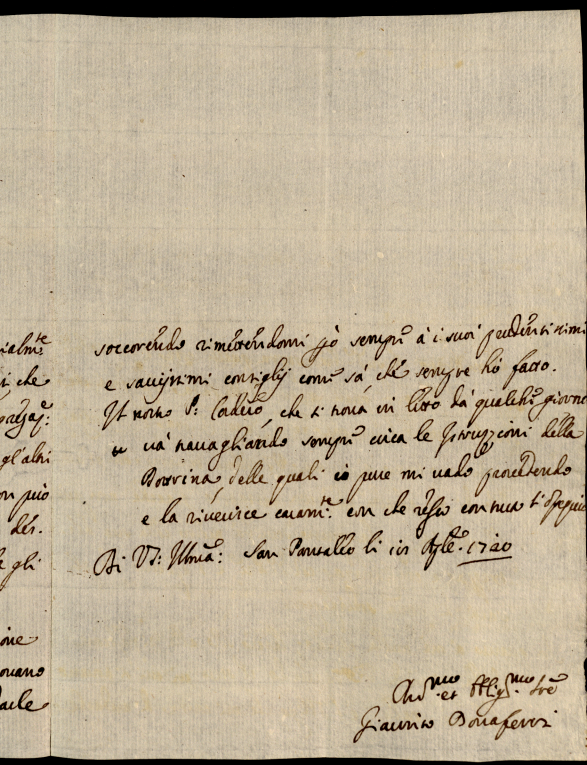 ialm.te
ni che
gl'altri
on può
der.
e gli
ione
ovano
socorrendo rimettendomi però sempre à i suoi prudentissimi
e saviissimi consiglij come sà, che sempre hò fatto.
Il nostro P: che si trova in letto da qualche giorno
và travagliando sempre circa le Istruzzioni della
Dottrina, delle quali io pure mi vado procedendo
e la riverisce caram.te con che resto con tutto l'ossequio
Di V.S: Illma: San Pantaleo li 1720
Um.mo et Obblig.mo Sre
Giacinto Bonaferri